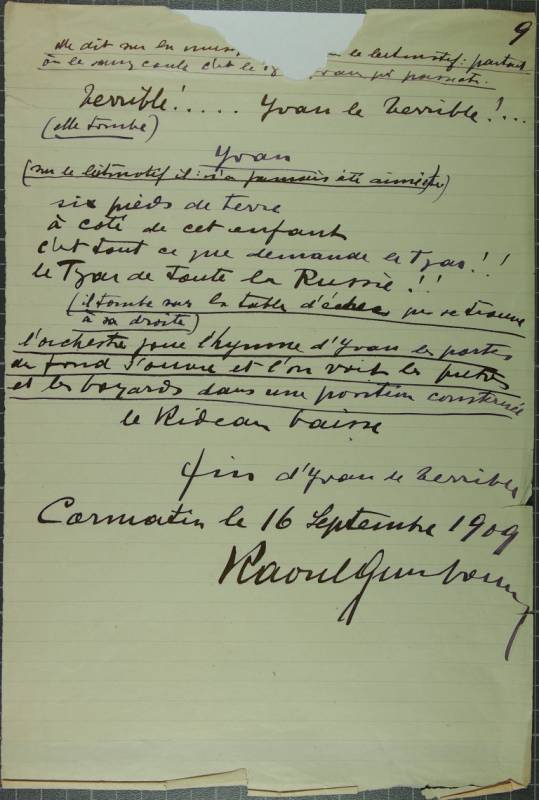 9
elle dit sur le leitmotif: partout
où le sang coule c'est le
Terrible!..... Yvan le Terrible!...
(elle tombe)
Yvan
(sur le leitmotif il n'a jamais été aimé)
six pieds de terre
à coté de cet enfant
c'est tout ce que demande le Tzar!!
le Tzar de toute la Russie!!
(il tombe sur la table d'échecs qui se trouve
à sa droite)
l'orchestre joue l'hymne d'Yvan les portes
du fond s'ouvre et l'on voit les prêtres
et les boyards dans une position consternée
le Rideau baisse
fin d'Yvan le Terrible
Cormatin le 16 Septembre 1909
Raoul Gunsbourg